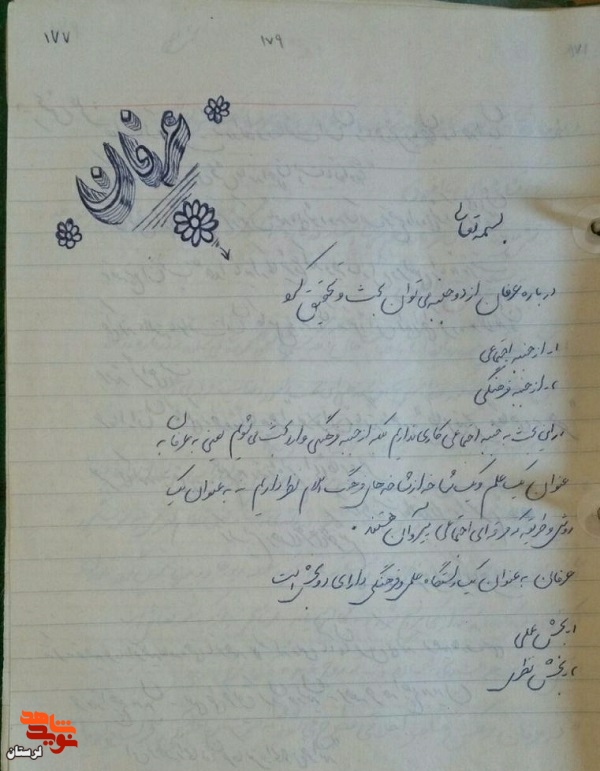 ۱۷۷
۱۷۹
عرفان
بسمه تعالی
درباره عرفان از دو جنبه می توان بحث و تحقیق کرد
۱- از جنبه اجتماعی
۲- از جنبه فرهنگی
در این بحث به جنبه اجتماعی کاری نداریم بلکه از جنبه فرهنگی وارد بحث می شویم یعنی به عرفان به
عنوان یک علم و یک شاخه از شاخه های فرهنگ اسلام نظر داریم - نه به عنوان یک
روش و طریقه که فرقه ای اجتماعی پیروان هستند.
عرفان به عنوان یک دستگاه علمی و فرهنگی دارای دو بخش است
۱- بخش عملی
۲- بخش نظری
نوید شاهد
لرستان